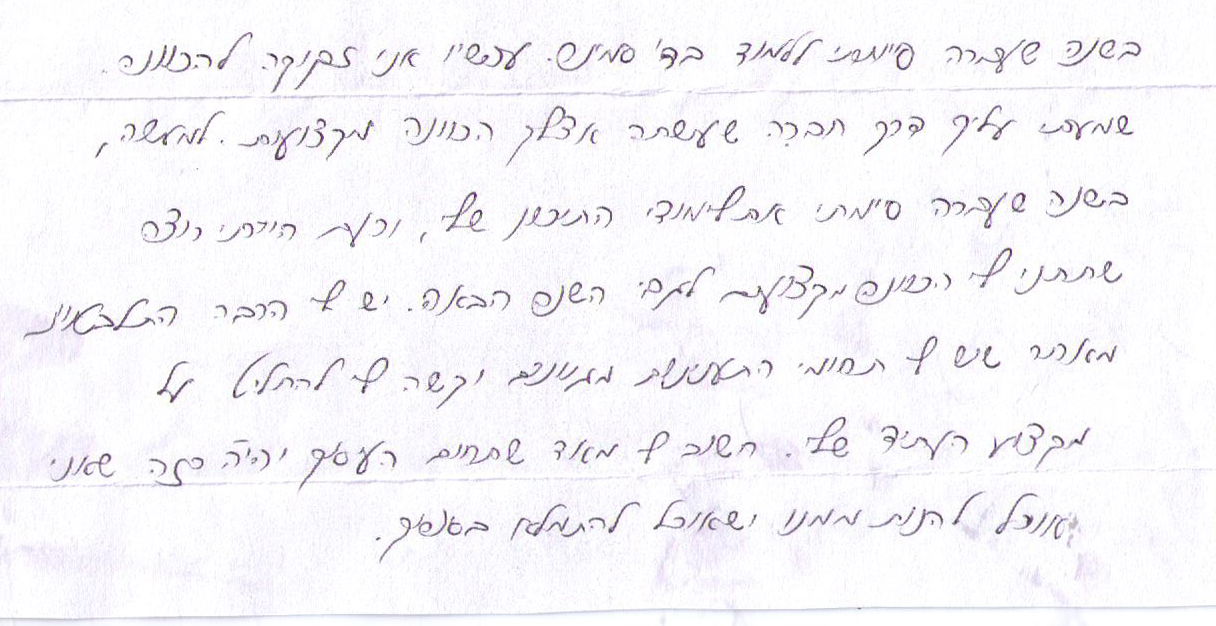 בשנה שעברה סיימתי ללמוד בבי״ס סמינר. עכשיו אני זקוקה להכוונה.
שמעתי עליך דרך חברה שעשתה אצלך הכוונה מקצועית. למעשה,
בשנה שעברה סיימתי את לימודי התיכון שלי, וכעת הייתי רוצה
שתתני לי הכוונה מקצועית לגבי השנה הבאה. יש לי הרבה התלבטויות
מאחר שיש לי תחומי התעניינות מגוונים וקשה לי להחליט על
מקצוע העתיד שלי. חשוב לי מאד שתחום העיסוק יהיה כזה שאני
אוכל להנות ממנו ושאוכל להתמלא בסיפוק.